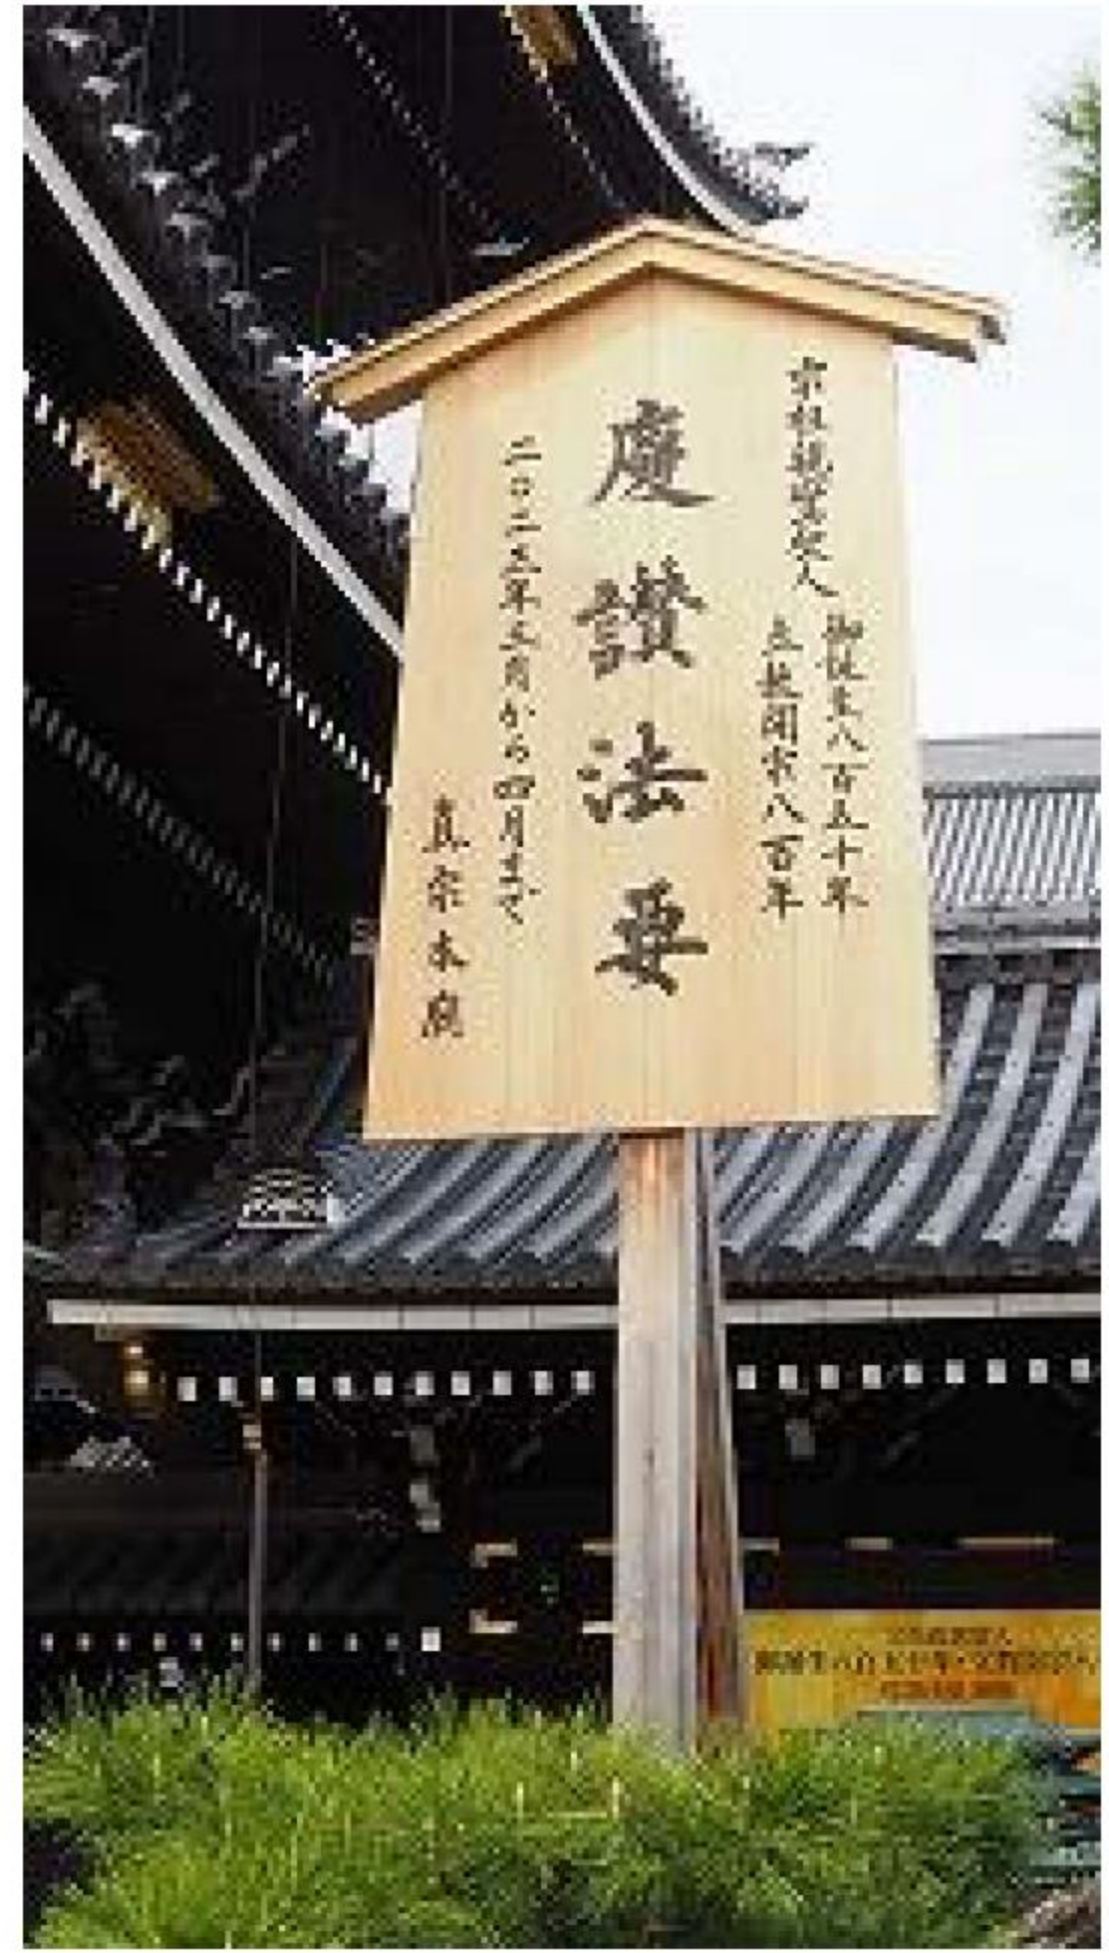 宗祖親鸞聖人
御誕生八百五十年
立教開宗八百年
慶讃法要
二〇二三年三月から四月まで
真宗本廟